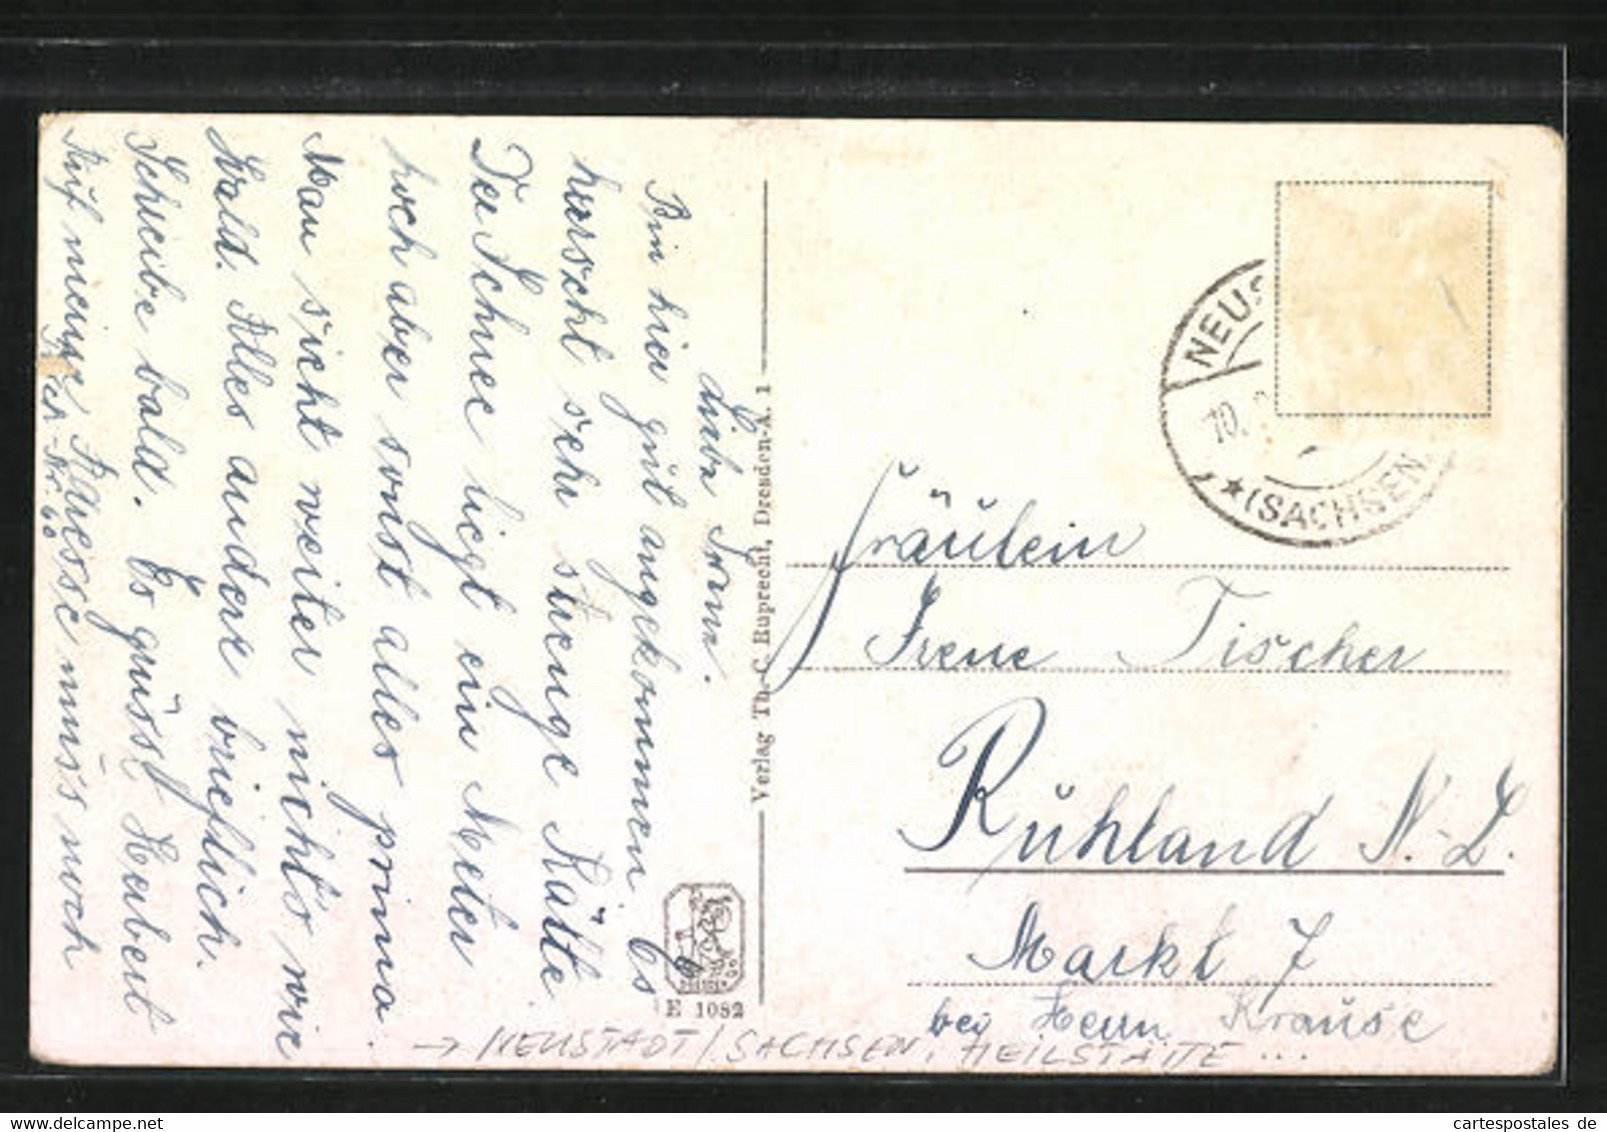 Liebe Irene.
Bin hier gut angekommen Es
herrscht sehr strenge Kälte
Der Schnee liegt ein Meter
hoch aber sonst alles prima.
Man sieht weiter nichts wie
Wald. Alles andere brieflich.
Schreibe bald. Es grüsst Herbert
Auf meine Adresse muss noch
Nr. 60
Verlag Th.-C. Ruprecht, Dresden-A. 1
E 1082
NEUS
10.
★(SACHSEN)
Fräulein
Irene Tischer
Ruhland N.-L.
Markt 7
bei Herrn Krause
→ NEUSTADT/SACHSEN, HEILSTÄTTE ...
cartespostales de